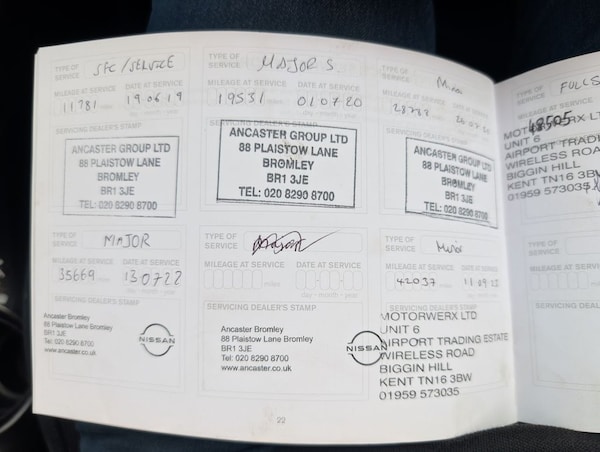 TYPE OF SERVICE SFC/SERVICE
MILEAGE AT SERVICE DATE AT SERVICE
11781 miles 19 06 19
day - month - year
SERVICING DEALER'S STAMP
ANCASTER GROUP LTD
88 PLAISTOW LANE
BROMLEY
BR1 3JE
TEL: 020 8290 8700
TYPE OF SERVICE MAJOR S.
MILEAGE AT SERVICE DATE AT SERVICE
19531 miles 01 07 20
day - month - year
SERVICING DEALER'S STAMP
ANCASTER GROUP LTD
88 PLAISTOW LANE
BROMLEY
BR1 3JE
TEL: 020 8290 8700
TYPE OF SERVICE Minor
MILEAGE AT SERVICE DATE AT SERVICE
28788 miles
day - month - year
SERVICING DEALER'S STAMP
ANCASTER GROUP LTD
88 PLAISTOW LANE
BROMLEY
BR1 3JE
TEL: 020 8290 8700
TYPE OF SERVICE MAJOR
MILEAGE AT SERVICE DATE AT SERVICE
35669 miles 13 07 22
day - month - year
SERVICING DEALER'S STAMP
Ancaster Bromley
88 Plaistow Lane Bromley
BR1 3JE
Tel: 020 8290 8700
www.ancaster.co.uk
NISSAN
TYPE OF SERVICE
MILEAGE AT SERVICE DATE AT SERVICE
miles
day - month - year
SERVICING DEALER'S STAMP
Ancaster Bromley
88 Plaistow Lane Bromley
BR1 3JE
Tel: 020 8290 8700
www.ancaster.co.uk
NISSAN
TYPE OF SERVICE
MILEAGE AT SERVICE DATE AT SERVICE
42037 miles
day - month - year
MOTORWERX LTD
UNIT 6
AIRPORT TRADING ESTATE
WIRELESS ROAD
BIGGIN HILL
KENT TN16 3BW
01959 573035
22
TYPE OF SERVICE FULL S
48505
UNIT 6
AIRPORT TRADING
WIRELESS ROAD
BIGGIN HILL
KENT TN16 3BW
01959 573035
TYPE OF SERVICE
MILEAGE AT SERVICE
SERVICING DEALER'S